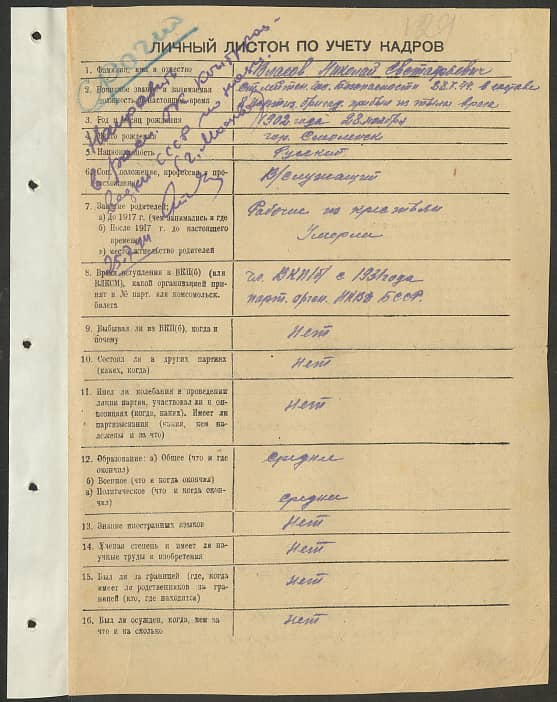 СРОЧНО
129
ЛИЧНЫЙ ЛИСТОК ПО УЧЕТУ КАДРОВ
1. Фамилия, имя и отчество
Власов Николай
2. Воинское звание и занимаемая
должность в настоящее время
в составе
из тыла врага
3. Год и месяц рождения
1902 года 28 ноября
4. Место рождения
гор. Смоленск
5. Национальность
Русский
6. Соц. положение, профессия, про-
В/Служащий
7. Занятие родителей:
а) До 1917 г. (чем занимались и где
б) После 1917 г. до настоящего
времени
в) местожительство родителей
Рабочие из крестьян
Умерли
8. Время вступления в ВКП(б) (или
ВЛКСМ), какой организацией при-
нят и № парт. или комсомольск.
билета
чл. ВКП(б) с 1931 года
парт. орган. НКВД БССР.
9. Выбывал ли из ВКП(б), когда и
почему
Нет
10. Состоял ли в других партиях
(каких, когда)
Нет
11. Имел ли колебания в проведении
линии партии, участвовал ли в оп-
позициях (когда, каких). Имеет ли
партвзыскания (какия, кем на-
ложены и за что)
Нет
12. Образование: а) Общее (что и где
окончил)
б) Военное (что и когда окончил)
в) Политическое (что и когда окон-
чил)
Среднее
Среднее
13. Знание иностранных языков
Нет
14. Ученая степень и имеет ли на-
учные труды и изобретения
Нет
15. Был ли за границей (где, когда
имеет ли родственников за гра-
ницей (кто, где находятся)
Нет
16. Был ли осужден, когда, кем за
что и на сколько
Нет
Направить
в
СССР по
г. Москва